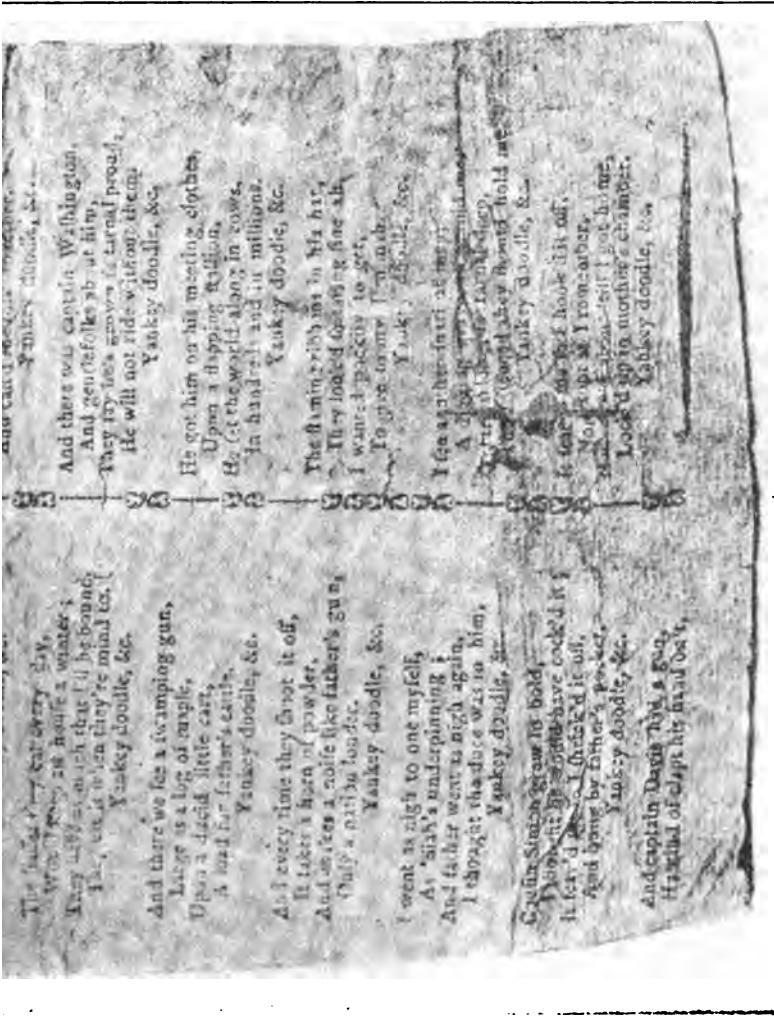 The they eat every day,
an houſe a winter ;
They as much that I'll be bound,
eat it when they're mind to.
Yankey doodle, &c.
And there we ſee a ſwamping gun,
Large as a log of maple,
Upon a ducid little cart,
A load for father's cattle,
Yankey doodle, &c.
And every time they ſhoot it off,
It takes a horn of powder,
And makes a noiſe like father's gun,
Only a nation louder.
Yankey doodle, &c.
I went as nigh to one myſelf,
As 'Siah's underpinning ;
And father went as nigh again,
I thought the duce was in him,
Yankey doodle, &c.
Couſin Simon grew ſo bold,
I thought he would have cock'd it ;
It ſcar'd me ſo I ſhrink'd it off,
And hung by father's pocket,
Yankey doodle, &c.
And captain Davis had a gun,
He kind of clapt his hand on't,
Yankey doodle, &c.
And there was captain Waſhington,
And gentlefolks about him,
They ſay he's grown ſo tarnal proud,
He will not ride without them
Yankey doodle, &c.
He got him on his meeting clothes,
Upon a ſlapping ſtallion,
He ſet the world along in rows,
In hundreds and in millions.
Yankey doodle, &c.
The flaming ribbons in his hat,
They look'd ſo taring fine ah,
I wanted to get,
To give to my Jemimah.
Yankey doodle, &c.
I ſee
A
they ſhould hold me,
Yankey doodle, &c.
It ſcar'd me ſo I hook'd it off,
Nor ſtopt as I remember,
till I got home,
Lock'd up in mother's chamber.
Yankey doodle, &c.